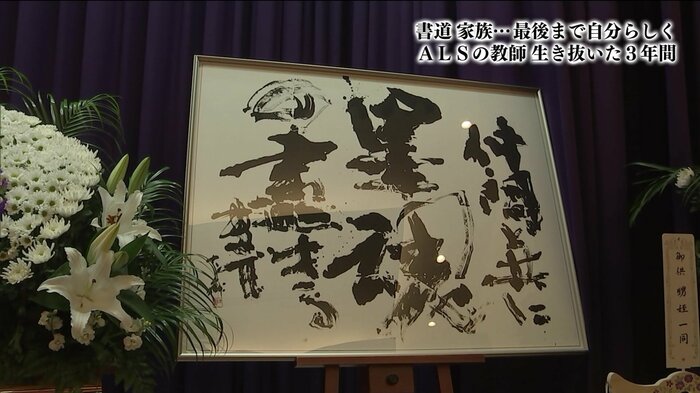 書道 家族…最後まで自分らしく
ＡＬＳの教師 生き抜いた３年間
仲間と共に
墨魂
御供 甥姪一同